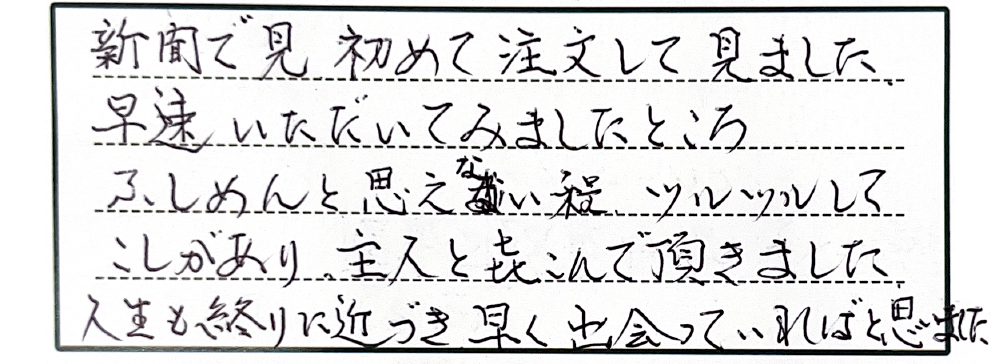 新聞で見 初めて注文して見ました、
早速いただいてみましたところ
ふしめんと思えない程、ツルツルして
こしがあり、主人と㐂こんで頂きました、
人生も終りに近づき早く出会っていればと思いました